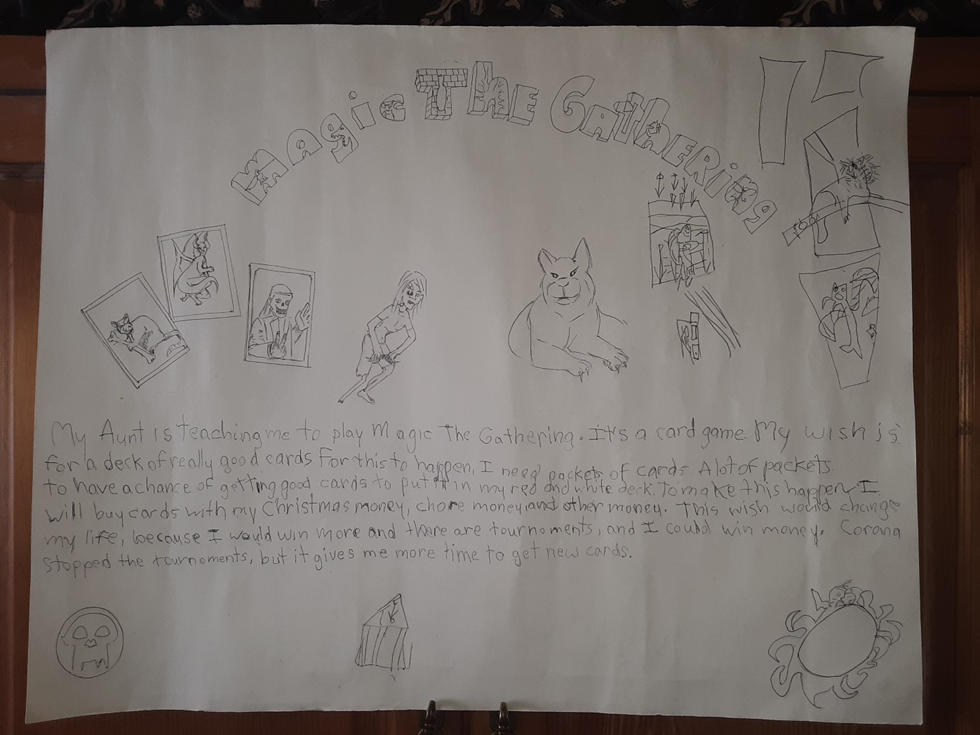 Magic The Gathering
My Aunt is teaching me to play Magic The Gathering. It's a card game My wish is
for a deck of really good cards For this to happen, I need packets of cards A lot of packets
to have a chance of getting good cards to put in my red and white deck. To make this happen I
will buy cards with my Christmas money, chore money, and other money. This wish would change
my life, because I would win more and there are tournoments, and I could win money. Corona
stopped the tournoments, but it gives me more time to get new cards.